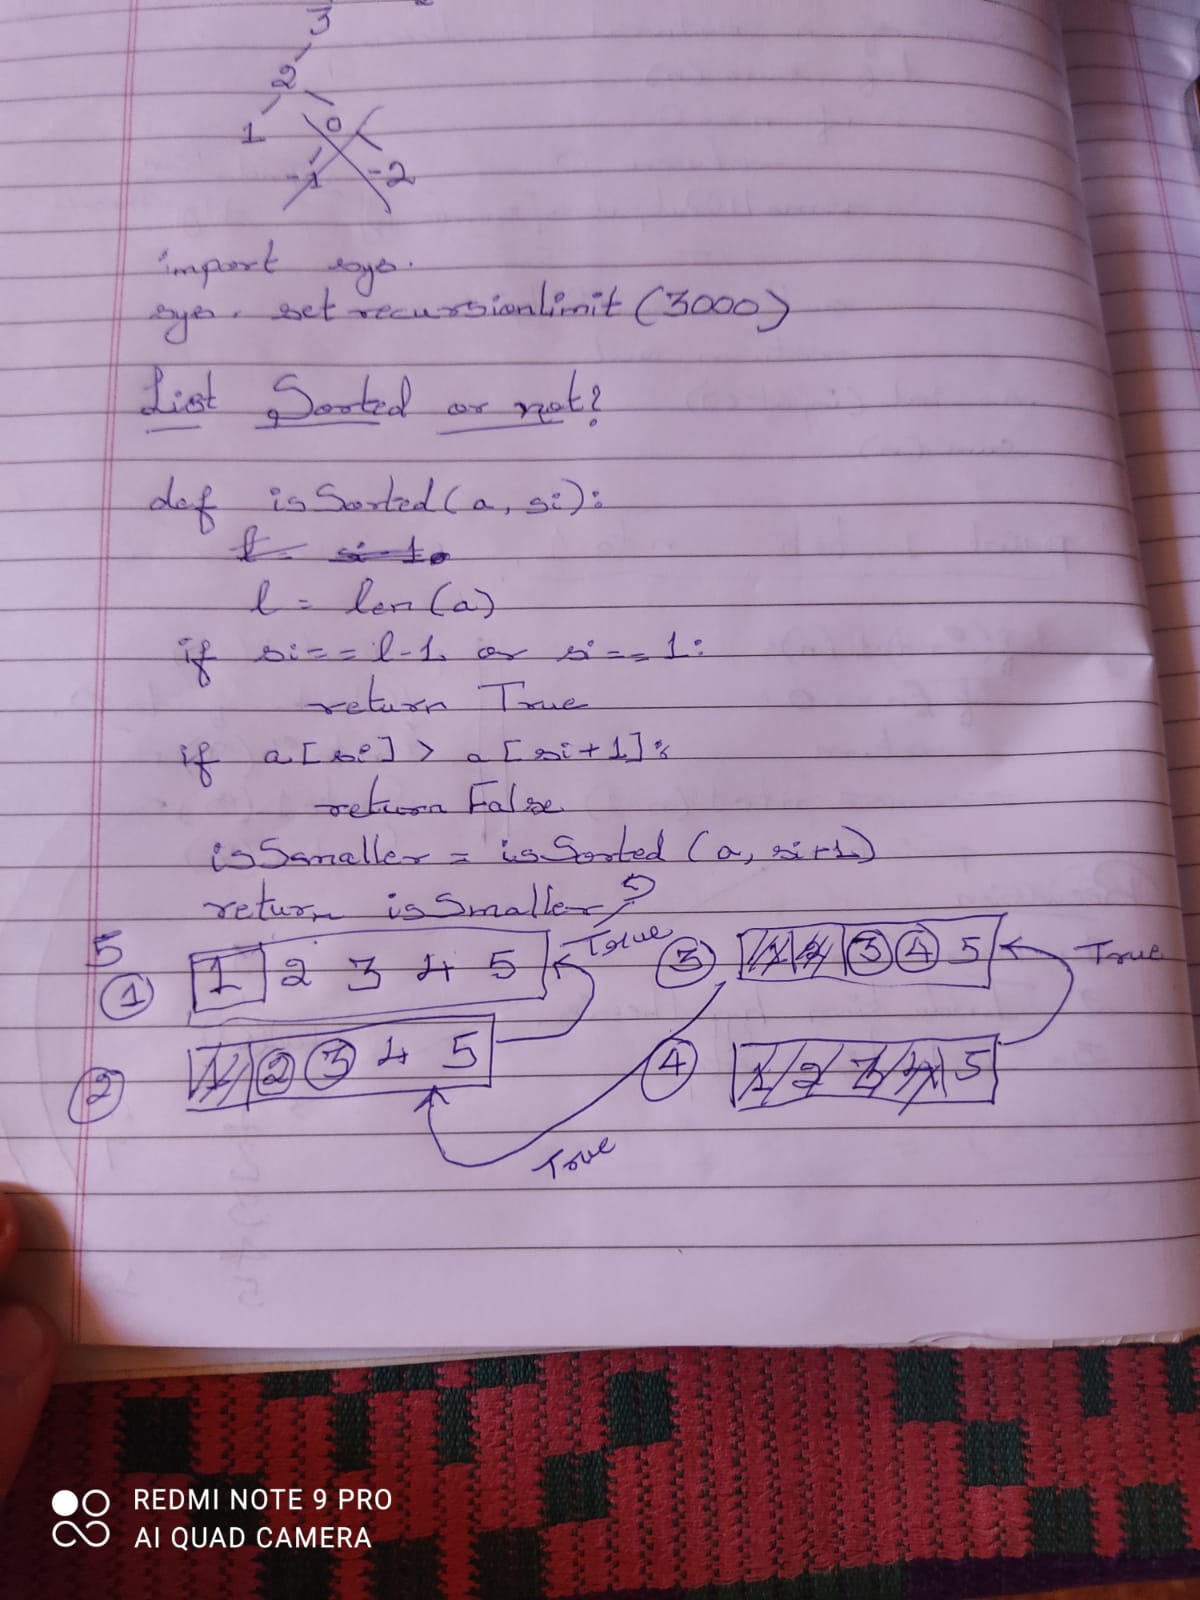 3
2
1 0
-1 -2
import sys.
sys. setrecursionlimit (3000)
List Sorted or not?
def isSorted (a, si):
l = si-1
l = len (a)
if si == l-1 or si == 1:
return True
if a[si] > a[si+1]:
return False
isSamaller = isSorted (a, si+1)
return isSmaller
5
① 1 2 3 4 5 True
② 1 2 3 4 5
③ 1 2 3 4 5 True
④ 1 2 3 4 5
True
REDMI NOTE 9 PRO
AI QUAD CAMERA